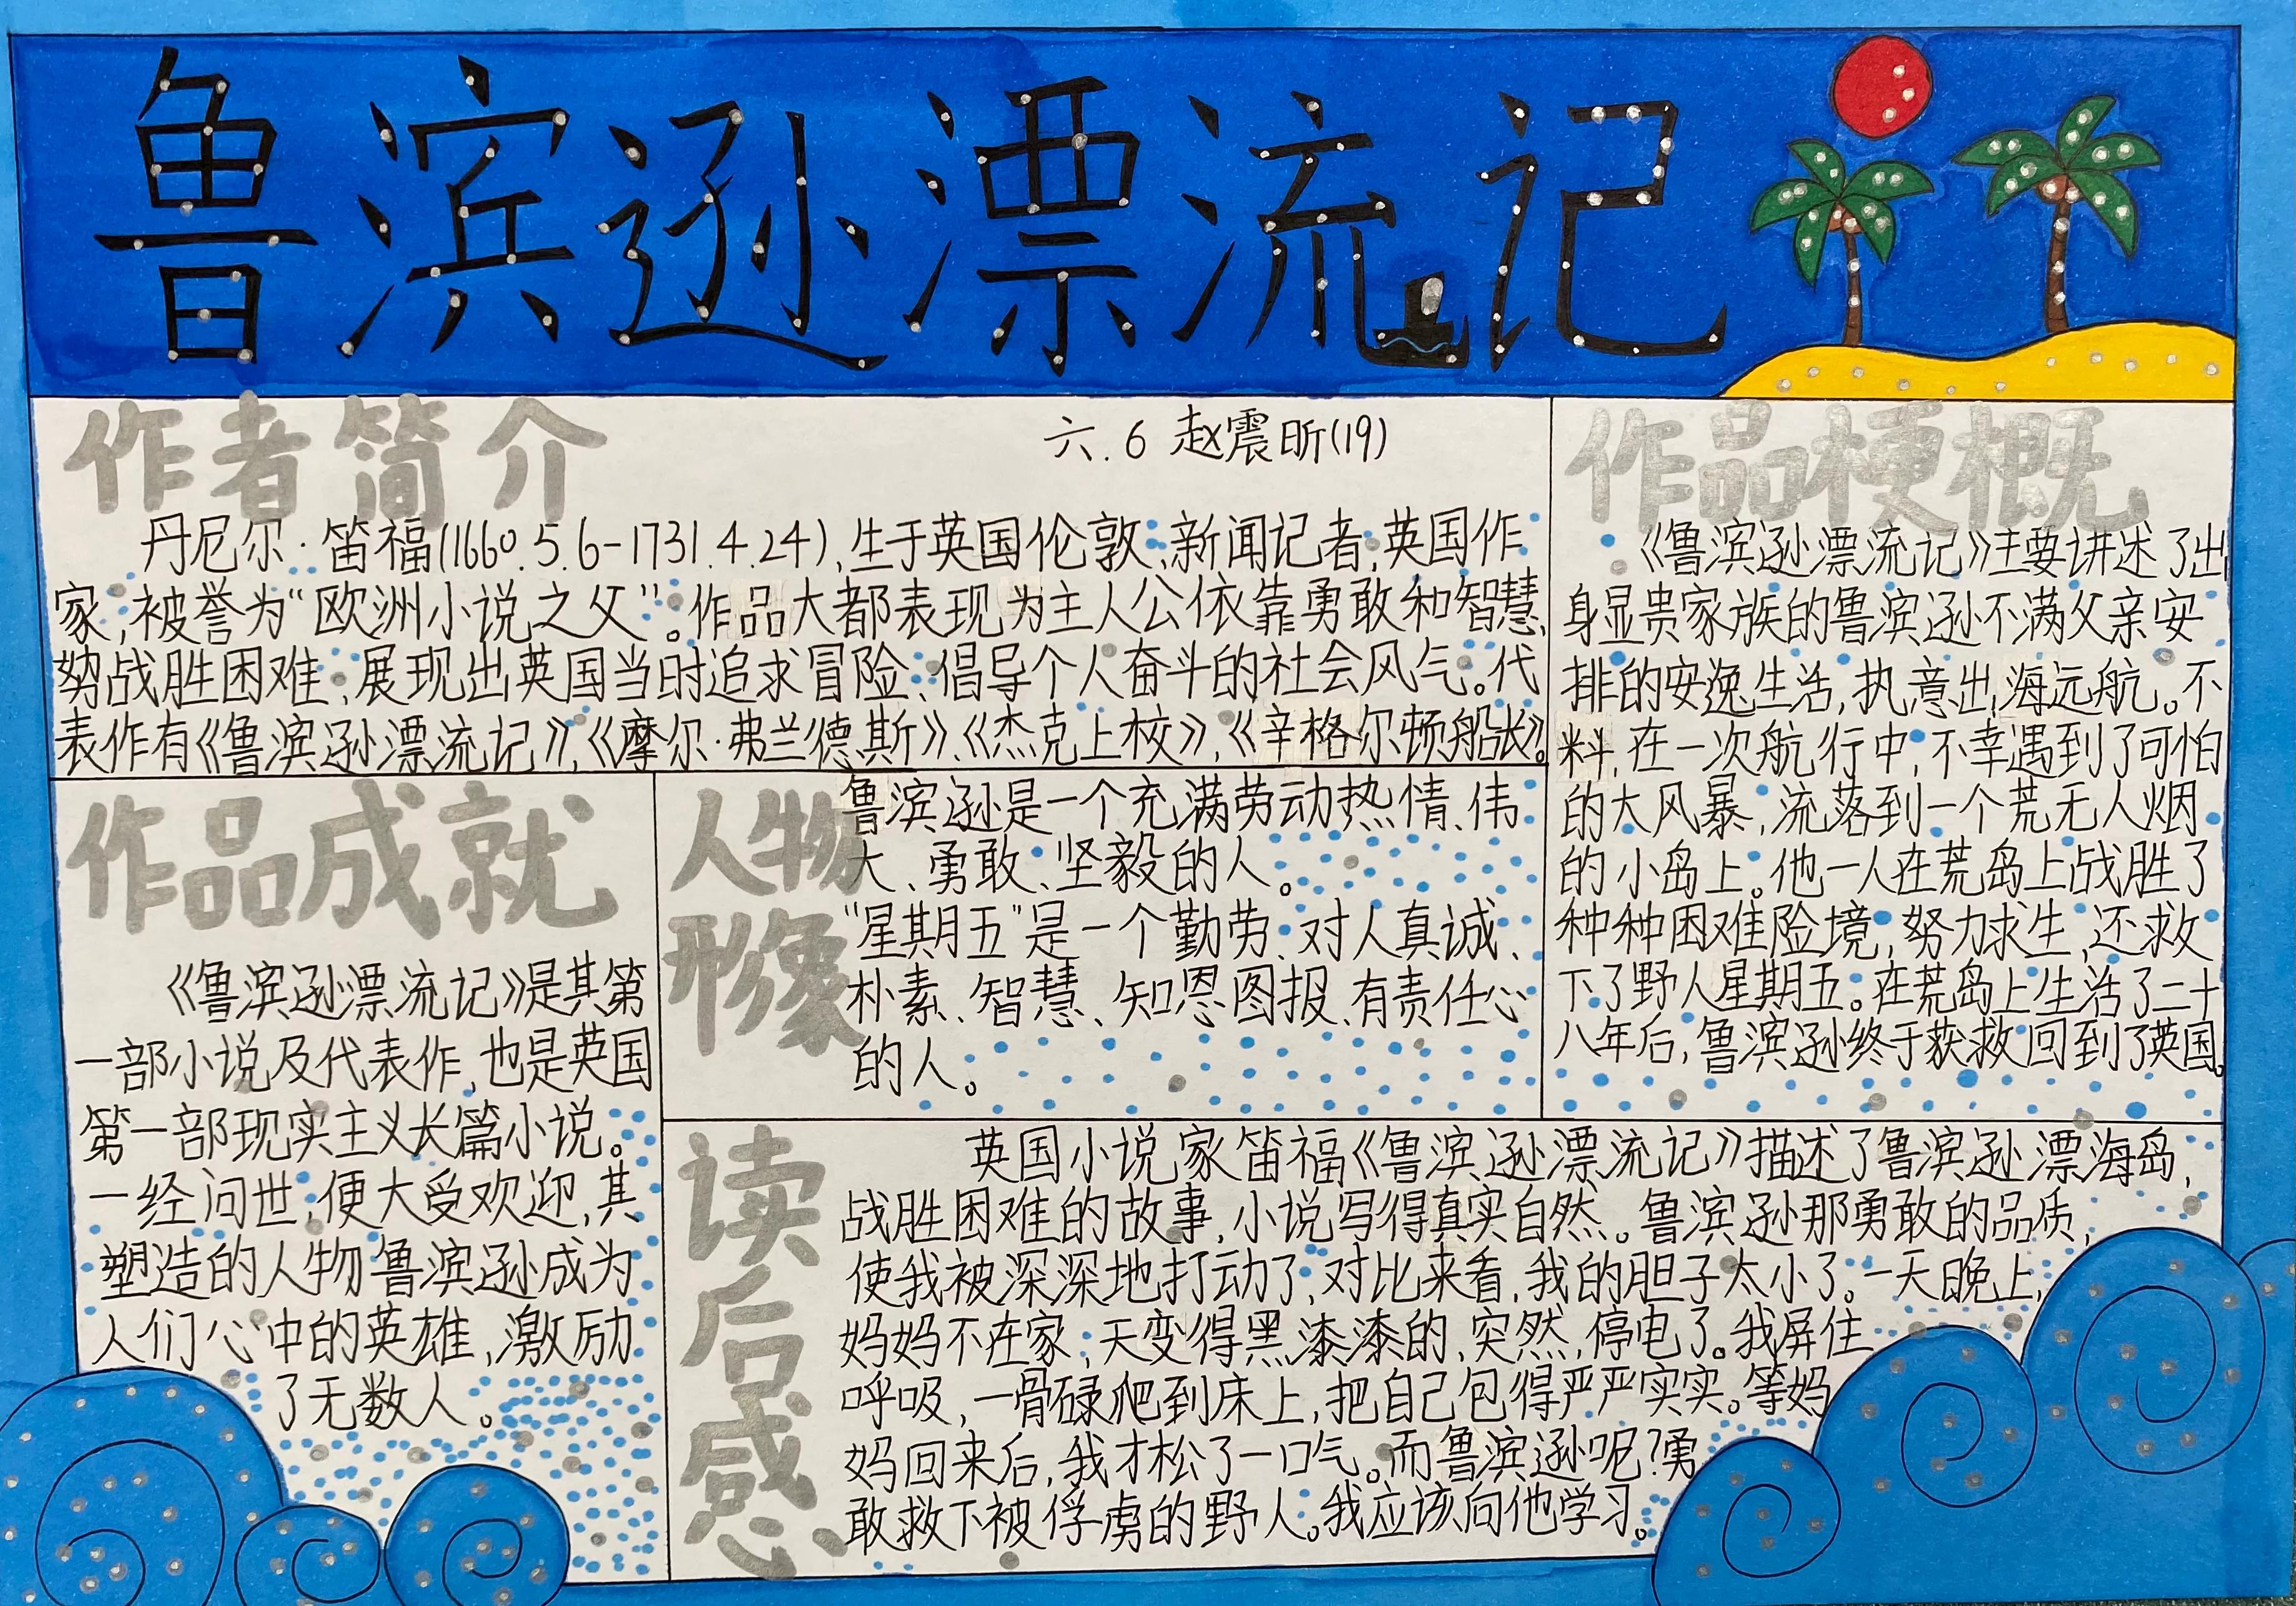 鲁滨逊漂流记
作者简介
六.6 赵震昕(19)
丹尼尔·笛福(1660.5.6-1731.4.24),生于英国伦敦,新闻记者,英国作
家,被誉为“欧洲小说之父”。作品大都表现为主人公依靠勇敢和智慧
势战胜困难,展现出英国当时追求冒险、倡导个人奋斗的社会风气。代
表作有《鲁滨逊漂流记》、《摩尔·弗兰德斯》、《杰克上校》、《辛格尔顿船长》。
作品梗概
《鲁滨逊漂流记》主要讲述了出
身显贵家族的鲁滨逊不满父亲安
排的安逸生活,执意出海远航。不
料,在一次航行中,不幸遇到了可怕
的大风暴,流落到一个荒无人烟
的小岛上。他一人在荒岛上战胜了
种种困难险境,努力求生,还救
下了野人星期五。在荒岛上生活了二十
八年后,鲁滨逊终于获救回到了英国。
作品成就
《鲁滨逊漂流记》是其第
一部小说及代表作,也是英国
第一部现实主义长篇小说。
一经问世,便大受欢迎,其
塑造的人物鲁滨逊成为
人们心中的英雄,激励
了无数人。
人物
形象
鲁滨逊是一个充满劳动热情、伟
大、勇敢、坚毅的人。
“星期五”是一个勤劳、对人真诚、
朴素、智慧、知恩图报、有责任心
的人。
读后感
英国小说家笛福《鲁滨逊漂流记》描述了鲁滨逊漂海岛,
战胜困难的故事,小说写得真实自然。鲁滨逊那勇敢的品质,
使我被深深地打动了,对比来看,我的胆子太小了。一天晚上,
妈妈不在家,天变得黑漆漆的,突然,停电了。我屏住
呼吸,一骨碌爬到床上,把自己包得严严实实。等妈
妈回来后,我才松了一口气。而鲁滨逊呢?勇
敢救下被俘虏的野人。我应该向他学习。